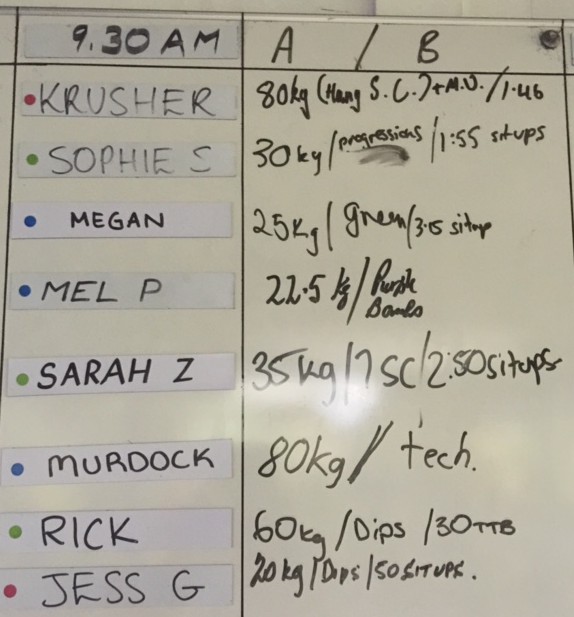 9.30 AM A / B
KRUSHER 80kg (Hang S.C.)+M.U./1.46
SOPHIE S 30kg/progressions/1:55 situps
MEGAN 25Kg/green/3.15 situp
MEL P 22.5 kg/Purple
Bands
SARAH Z 35kg/7 SC/2:50 situps
MURDOCK 80kg/tech.
RICK 60kg/Dips/30TTB
JESS G 20kg/Dips/50 SITUPS.